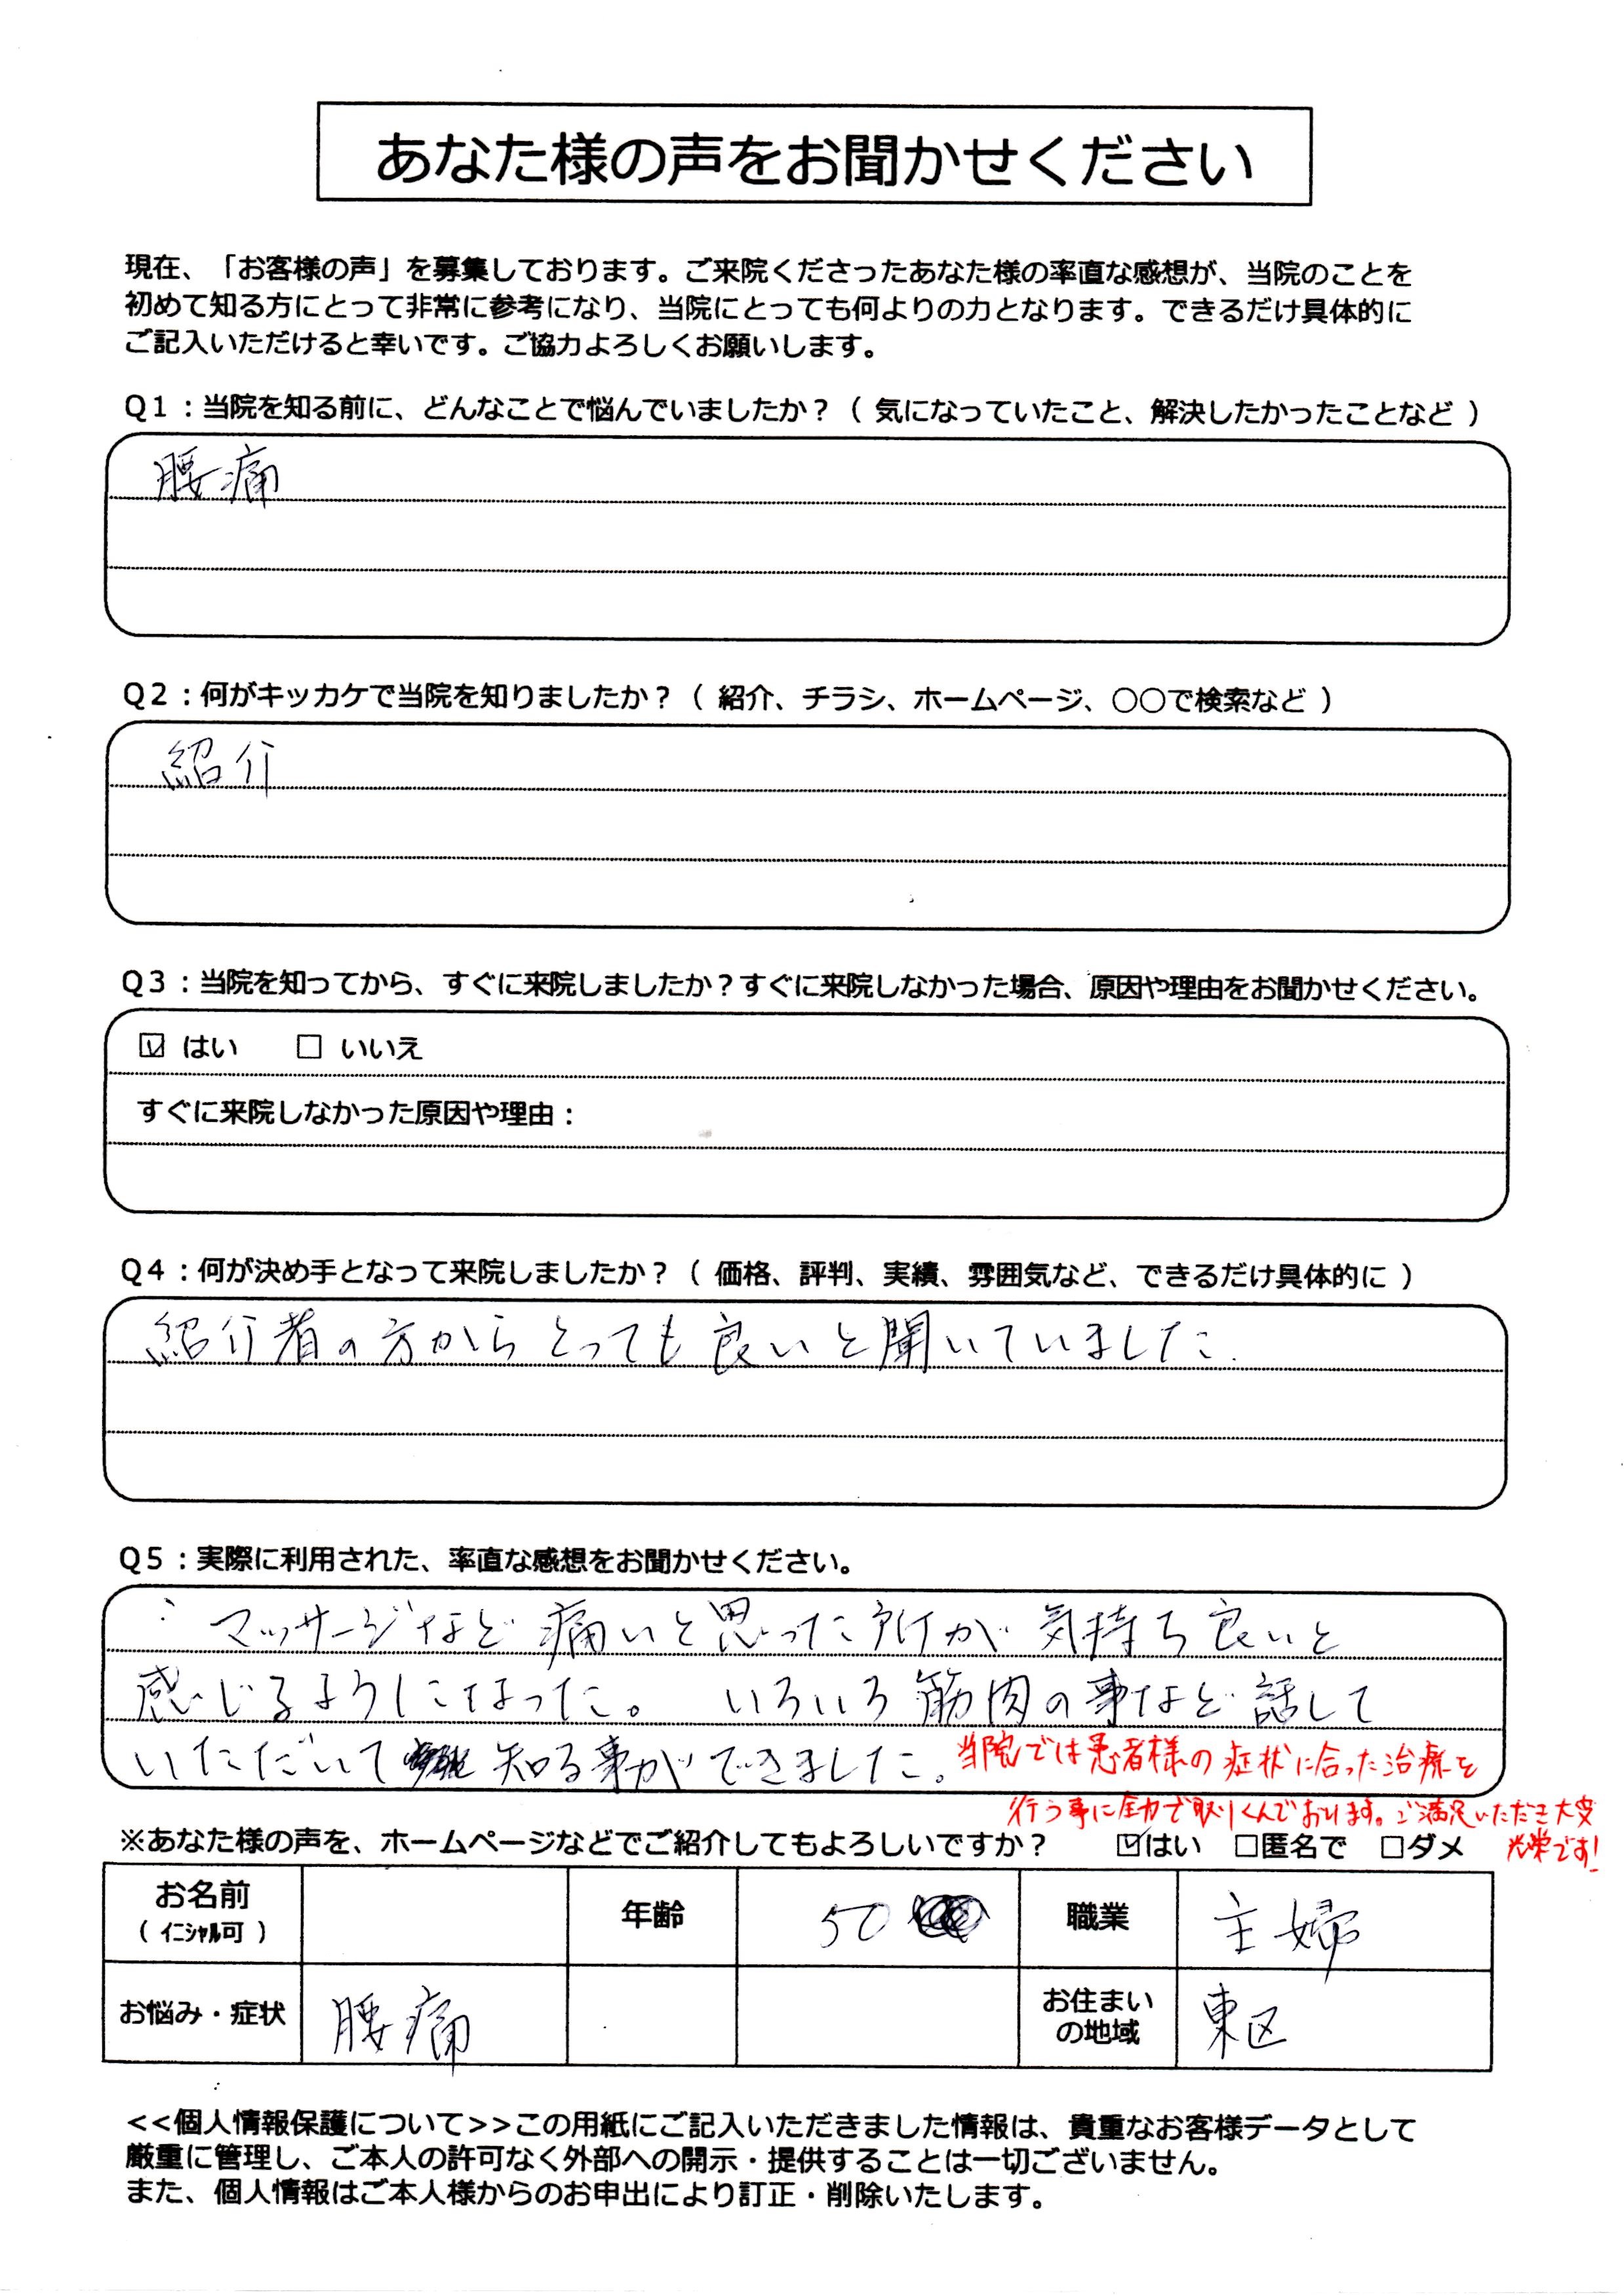 あなた様の声をお聞かせください
現在、「お客様の声」を募集しております。ご来院くださったあなた様の率直な感想が、当院のことを
初めて知る方にとって非常に参考になり、当院にとっても何よりの力となります。できるだけ具体的に
ご記入いただけると幸いです。ご協力よろしくお願いします。
Q1：当院を知る前に、どんなことで悩んでいましたか？（ 気になっていたこと、解決したかったことなど ）
腰痛
Q2：何がキッカケで当院を知りましたか？（ 紹介、チラシ、ホームページ、○○で検索など ）
紹介
Q3：当院を知ってから、すぐに来院しましたか？すぐに来院しなかった場合、原因や理由をお聞かせください。
☑ はい □ いいえ
すぐに来院しなかった原因や理由：
Q4：何が決め手となって来院しましたか？（ 価格、評判、実績、雰囲気など、できるだけ具体的に ）
紹介者の方からとっても良いと聞いていました.
Q5：実際に利用された、率直な感想をお聞かせください。
マッサージなど痛いと思った所が気持ち良いと
感じるようになった。 いろいろ筋肉の事など話して
いただいて 知る事ができました。
当院では患者様の症状に合った治療を
行う事に全力で取りくんでおります。ご満足いただき大変
光栄です!
※あなた様の声を、ホームページなどでご紹介してもよろしいですか？ ☑はい □匿名で □ダメ
お名前 （ イニシャル可 ） 年齢 50 職業 主婦
お悩み・症状 腰痛 お住まいの地域 東区
<<個人情報保護について>>この用紙にご記入いただきました情報は、貴重なお客様データとして
厳重に管理し、ご本人の許可なく外部への開示・提供することは一切ございません。
また、個人情報はご本人様からのお申出により訂正・削除いたします。